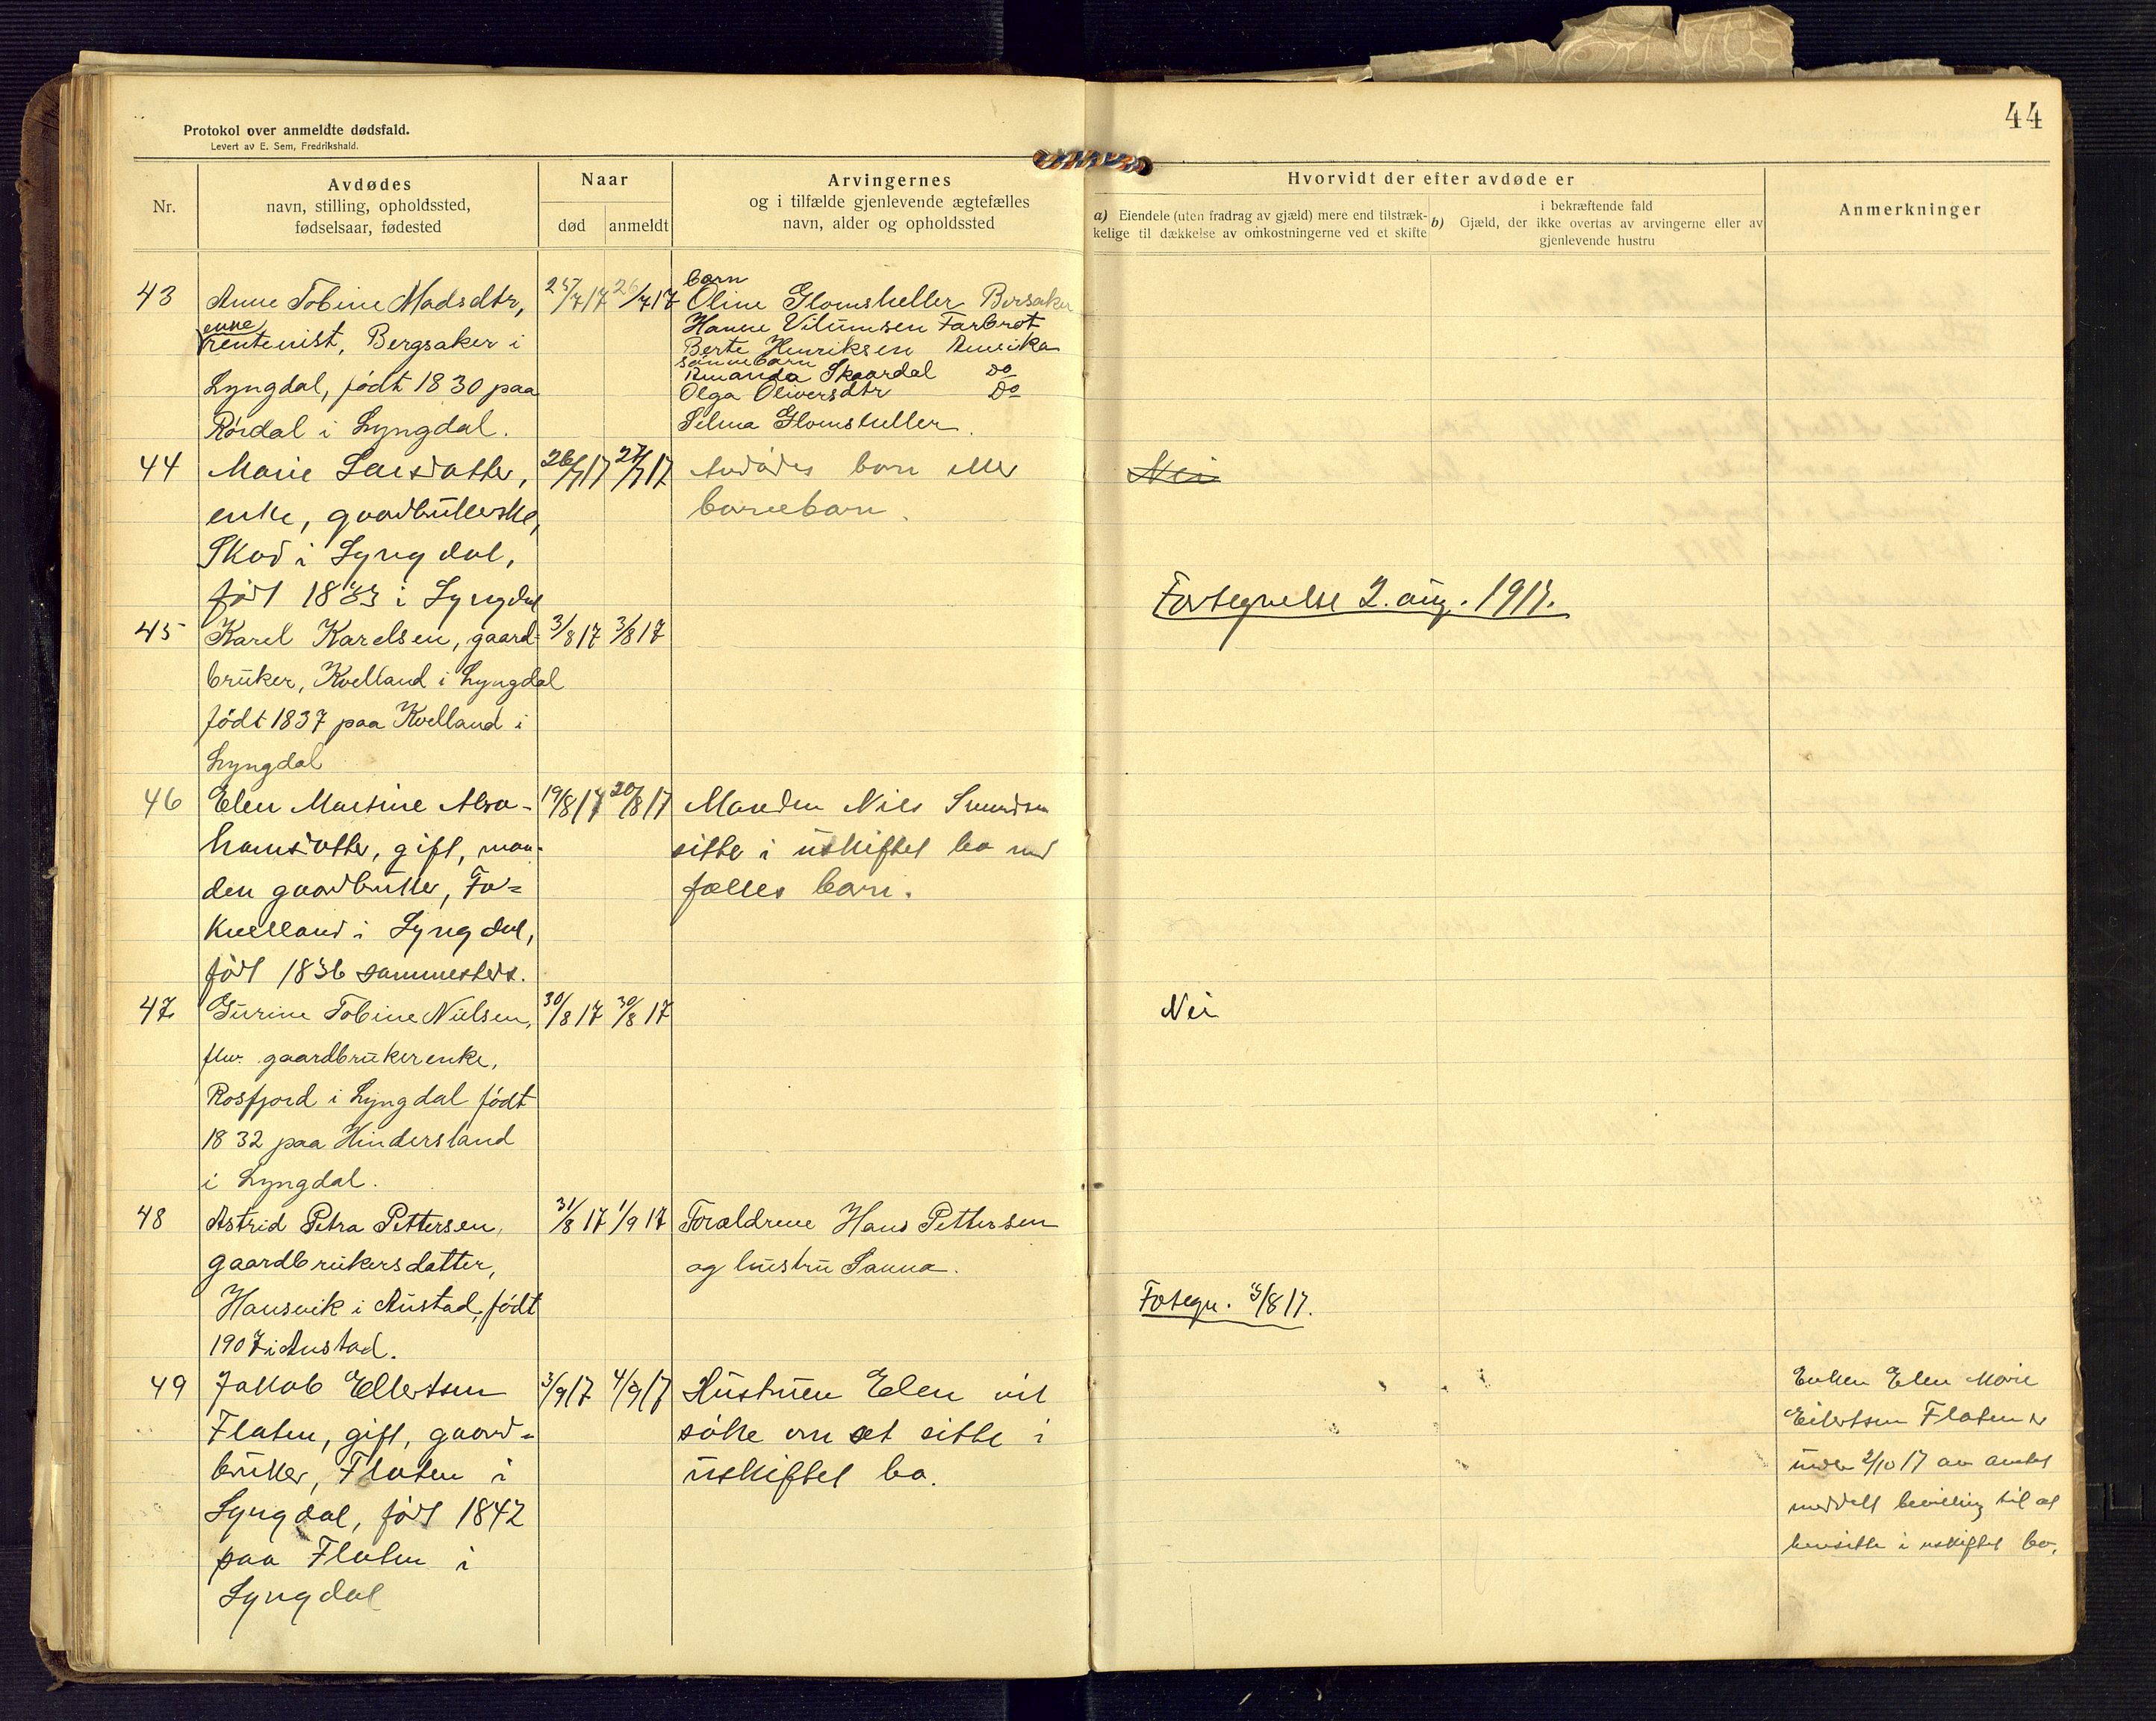 44
Protokol over anmeldte dødsfald.
Levert av E. Sem, Fredrikshald.
Nr.
Avdødes
navn, stilling, opholdssted,
fødselsaar, fødested
Naar
død
anmeldt
Arvingernes
og i tilfælde gjenlevende ægtefælles
navn, alder og opholdssted
Hvorvidt der efter avdøde er
a) Eiendele (uten fradrag av gjæld) mere end tilstræk-
kelige til dækkelse av omkostningerne ved et skifte
i bekræftende fald
b) Gjæld, der ikke overtas av arvingerne eller av
gjenlevende hustru
Anmerkninger
43
Anne Tobine Madsdtr,
enke
rentenist, Bergsaker i
Lyngdal, født 1830 paa
Rørdal i Lyngdal.
25/7 17
26/7 17
barn
Oline Glomsheller Bersaker
Hanne Vilumsen Farbrot
Berte Henriksen Amerika
sønnebarn
Amanda Skaardal Do
Olga Oliversdtr Do
Selma Glomsheller.
44
Marie Larsdatter,
enke, gaardbrukerske,
Skod i Lyngdal,
født 1833 i Lyngdal
26/7 17
27/7 17
Avdødes barn eller
barnebarn.
Nei
Fortegnelse 2. aug. 1917.
45
Karel Karelsen, gaard-
bruker, Kvelland i Lyngdal
født 1837 paa Kvelland i
Lyngdal
3/8 17
3/8 17
46
Elen Martine Abra-
hamsdatter, gift, man-
den gaardbruker, Fo-
Kvelland i Lyngdal,
født 1836 sammesteds.
19/8 17
20/8 17
Manden Nils Svendsen
sitter i uskiftet bo med
fælles barn.
47
Gurine Tobine Nilsen,
fhv. gaardbrukerenke,
Rosfjord i Lyngdal født
1832 paa Hindersland
i Lyngdal.
30/8 17
30/8 17
Nei
48
Astrid Petra Pettersen,
gaardbrukersdatter,
Hansvik i Austad, født
1907 i Austad.
31/8 17
1/9 17
Forældrene Hans Pettersen
og hustru Sanna.
Fotegn. 3/8 17.
49
Jakob Ellertsen
Flaten, gift, gaard-
bruker, Flaten i
Lyngdal, født 1842
paa Flaten i
Lyngdal
3/9 17
4/9 17
Hustruen Elen vil
søke om at sitte i
uskiftet bo.
Enken Elen Marie
Eilertsen Flaten er
under 2/10 17 av amtet
meddelt bevilling til at
hensitte i uskiftet bo.